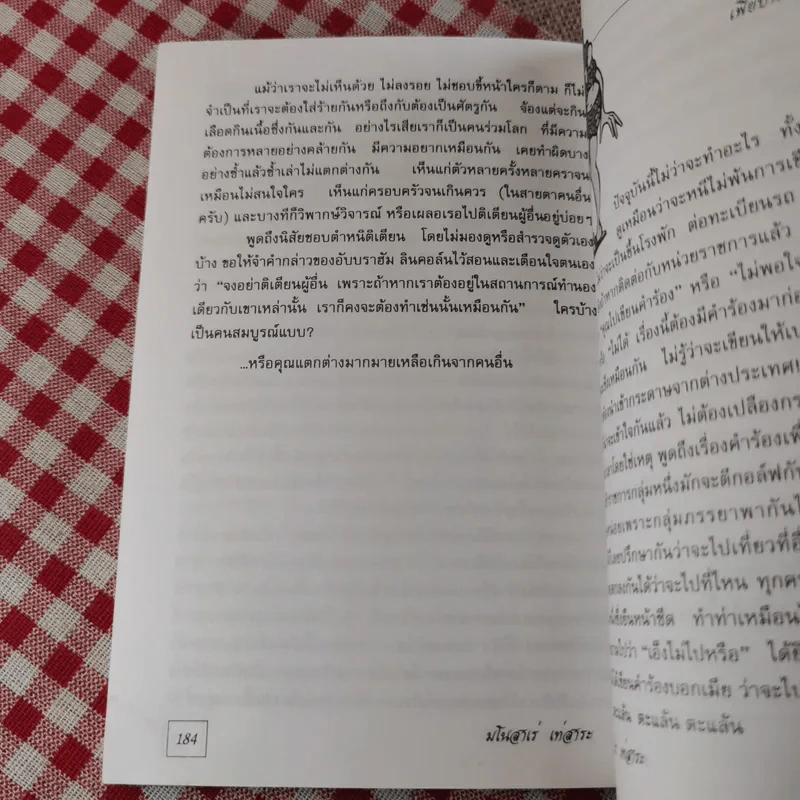 แม้ว่าเราจะไม่เห็นด้วย ไม่ลงรอย ไม่ชอบขี้หน้าใครก็ตาม ก็ไม่
จำเป็นที่เราจะต้องใส่ร้ายกันหรือถึงกับต้องเป็นศัตรูกัน จ้องแต่จะกิน
เลือดกินเนื้อซึ่งกันและกัน อย่างไรเสียเราก็เป็นคนร่วมโลก ที่มีความ
ต้องการหลายอย่างคล้ายกัน มีความอยากเหมือนกัน เคยทำผิดบาง
อย่างซ้ำแล้วซ้ำเล่าไม่แตกต่างกัน เห็นแก่ตัวหลายครั้งหลายคราจน
เหมือนไม่สนใจใคร เห็นแก่ครอบครัวจนเกินควร (ในสายตาคนอื่น
ครับ) และบางทีก็วิพากษ์วิจารณ์ หรือเผลอเรอไปติเตียนผู้อื่นอยู่บ่อยๆ
พูดถึงนิสัยชอบตำหนิติเตียน โดยไม่มองดูหรือสำรวจดูตัวเอง
บ้าง ขอให้จำคำกล่าวของอับบราฮัม ลินคอล์นไว้สอนและเตือนใจตนเอง
ว่า “จงอย่าติเตียนผู้อื่น เพราะถ้าหากเราต้องอยู่ในสถานการณ์ทำนอง
เดียวกับเขาเหล่านั้น เราก็คงจะต้องทำเช่นนั้นเหมือนกัน” ใครบ้าง
เป็นคนสมบูรณ์แบบ?
...หรือคุณแตกต่างมากมายเหลือเกินจากคนอื่น
184 มโนสาเร่ เท่สาระ
ปัจจุบันนี้ไม่ว่าจะทำอะไร
ดูเหมือนว่าจะหนีไม่พ้นการ
ว่าจะขึ้นโรงพัก ต่อทะเบียนรถ
ถ้าหากติดต่อกับหน่วยราชการแล้ว
ไปเขียนคำร้อง” หรือ “ไม่พอใจ
“ไม่ได้ เรื่องนี้ต้องมีคำร้องมาก่อน
เหมือนกัน ไม่รู้ว่าจะเขียนให้
นำเข้ากระดาษจากต่างประเทศ
จะเข้าใจกันแล้ว ไม่ต้องเปลือง
โดยใช่เหตุ พูดถึงเรื่องคำร้อง
ราชการกลุ่มหนึ่งมักจะตีกอล์ฟกัน
เพราะกลุ่มภรรยาพากัน
ปรึกษากันว่าจะไปเที่ยวที่
กันได้ว่าจะไปที่ไหน ทุกคน
ยืนหน้าซีด ทำท่าเหมือน
ว่า “เอ็งไม่ไปหรือ” ได้
เขียนคำร้องบอกเมีย ว่าจะไป
ตะแล้น ตะแล้น ตะแล้น